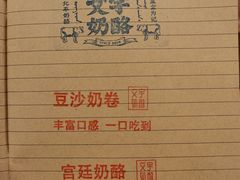 文宇
奶酪
豆沙奶卷
丰富口感 一口吃到
文宇
奶酪
宫廷奶酪
文宇
奶酪